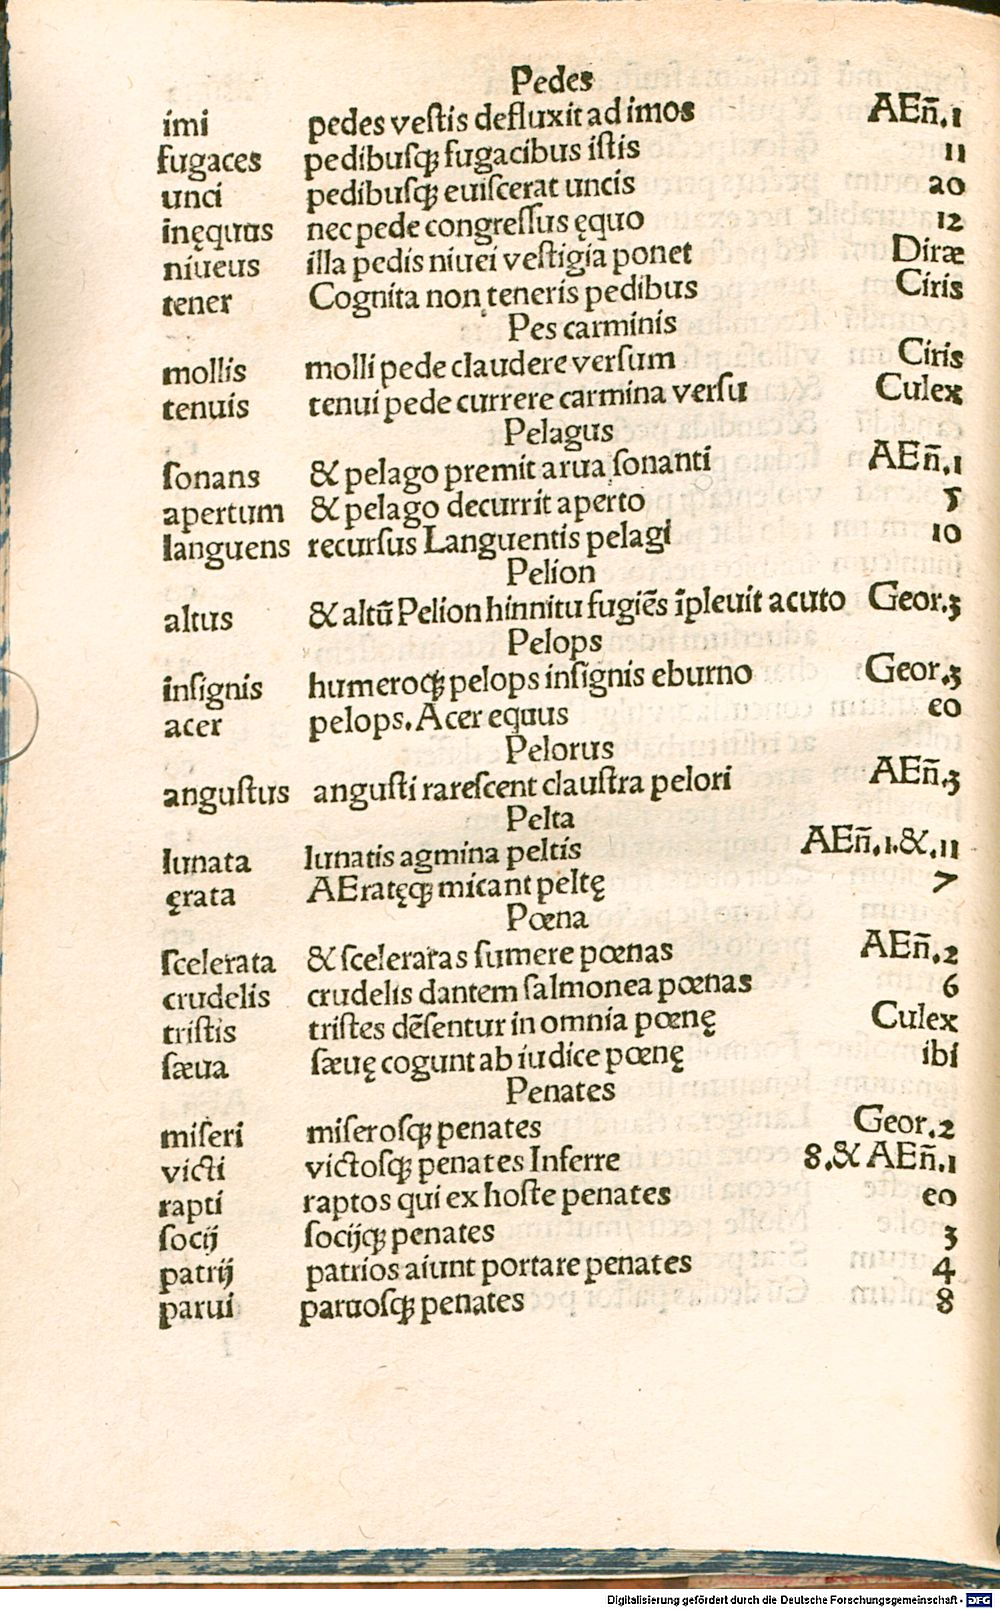 Pedes
imi pedes veſtis defluxit ad imos AEn̄.1
fugaces pedibuſqꝫ fugacibus iſtis 11
unci pedibuſqꝫ euiſcerat uncis 20
inęquus nec pede congreſſus ęquo 12
niueus illa pedis niuei veſtigia ponet Diræ
tener Cognita non teneris pedibus Ciris
Pes carminis
mollis molli pede claudere verſum Ciris
tenuis tenui pede currere carmina verſu Culex
Pelagus
ſonans & pelago premit arua ſonanti AEn̄.1
apertum & pelago decurrit aperto 5
languens recurſus Languentis pelagi 10
Pelion
altus & altū Pelion hinnitu fugiēs īpleuit acuto Geor.3
Pelops
inſignis humeroqꝫ pelops inſignis eburno Geor.3
acer pelops. Acer equus eo
Pelorus
anguſtus anguſti rareſcent clauſtra pelori AEn̄.3
Pelta
lunata lunatis agmina peltis AEn̄.1.&.11
ęrata AEratęqꝫ micant peltę 7
Pœna
ſcelerata & ſceleratas ſumere pœnas AEn̄.2
crudelis crudelis dantem ſalmonea pœnas 6
triſtis triſtes dēſentur in omnia pœnę Culex
ſæua ſæuę cogunt ab iudice pœnę ibi
Penates
miſeri miſeroſqꝫ penates Geor.2
victi victoſqꝫ penates Inferre 8.& AEn̄.1
rapti raptos qui ex hoſte penates eo
ſocij ſocijqꝫ penates 3
patrij patrios aiunt portare penates 4
parui paruoſqꝫ penates 8
Digitalisierung gefördert durch die Deutsche Forschungsgemeinschaft - DFG